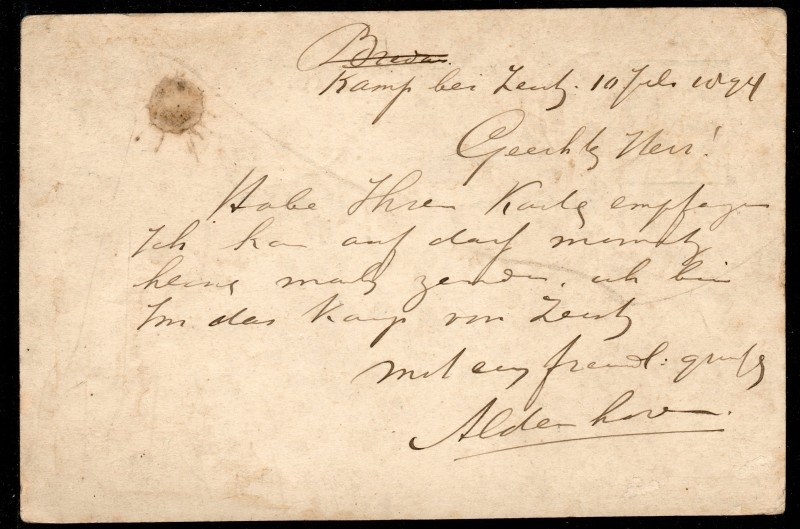 Breda
Kamp bei Zeist. 10 Juli 1894
Geechte Herr!
Habe Ihren Karte empfagen
Ich kan auf darf moment
keine malz zenden, ich bin
Im das Kamp von Zeist
mit ein freundl: grusse
Aldenhoven.